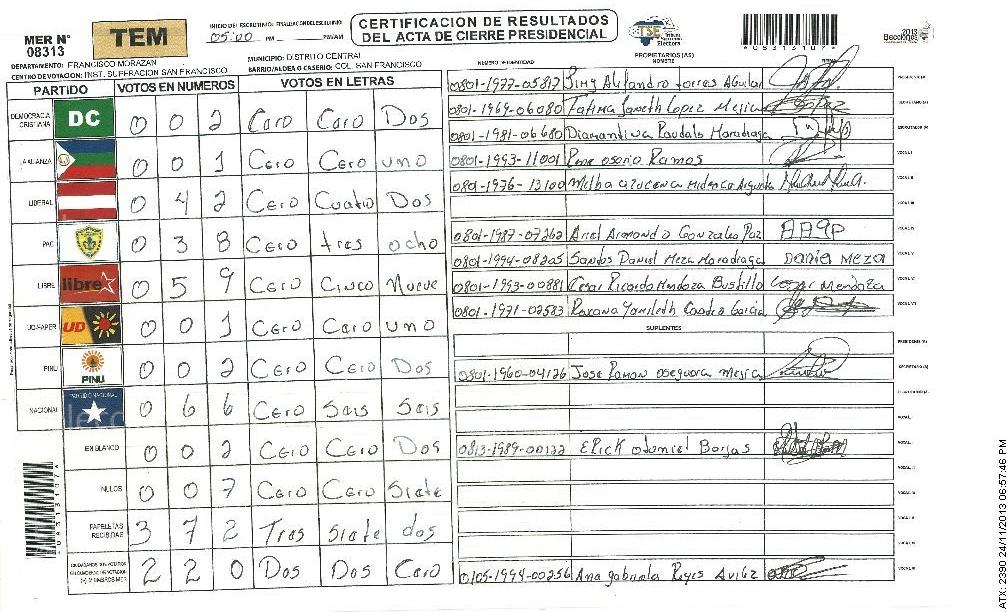 MER N° 08313
TEM
INICIO DEL ESCRUTINIO: FINALIZACION DEL ESCRUTINIO:
05:00 PM PM/AM
CERTIFICACION DE RESULTADOS
DEL ACTA DE CIERRE PRESIDENCIAL
TSE
*08313107*
2013
Elecciones
DEPARTAMENTO: FRANCISCO MORAZAN
MUNICIPIO: DISTRITO CENTRAL
CENTRO DE VOTACION: INST. SUPERACION SAN FRANCISCO
BARRIO/ALDEA O CASERIO: COL. SAN FRANCISCO
PARTIDO VOTOS EN NUMEROS VOTOS EN LETRAS
DEMOCRACIA CRISTIANA DC 0 0 2 Cero Cero Dos
LA ALIANZA 0 0 1 Cero Cero uno
LIBERAL 0 4 2 Cero Cuatro Dos
PAC 0 3 8 Cero tres ocho
LIBRE libre 0 5 9 Cero Cinco Nueve
UD-FAPER UD 0 0 1 Cero Cero uno
PINU PINU 0 0 2 Cero Cero Dos
NACIONAL PARTIDO NACIONAL 0 6 6 Cero Seis Seis
EN BLANCO 0 0 2 Cero Cero Dos
NULOS 0 0 7 Cero Cero Siete
PAPELETAS RECIBIDAS 3 7 2 Tres Siete dos
2 2 0 Dos Dos Cero
PROPIETARIOS (AS)
NUMERO DE IDENTIDAD NOMBRE FIRMA
0801-1977-05817 Jimy Alejandro Torres Aguilar PRESIDENTE (A)
0801-1969-06080 Fatima Janeth Lopez Mejia SECRETARIO (A)
0801-1981-06680 Diamantina Raudales Maradiaga ESCRUTADOR (A)
0801-1993-11001 Rene osorio Ramos VOCAL I
0801-1976-13100 Melba azucena VOCAL II
VOCAL III
0801-1987-07262 Ariel Armondo Gonzales Paz VOCAL IV
0801-1994-08205 Santos Daniel Meza Maradiaga Daniel Meza VOCAL V
0801-1993-00881 Cesar Ricardo Mendoza Bustillo Cesar Mendoza VOCAL VI
0801-1971-02583 Roxana Yamileth Garcia VOCAL VII
SUPLENTES
PRESIDENTE (A)
0801-1960-04126 Jose Ramon oseguera mejia SECRETARIO (A)
ESCRUTADOR (A)
VOCAL I
0813-1989-00132 Erick otoniel Borjas
0105-1994-00256 Ana gabriela Reyes Avilez
*08313107*
ATX: 2390 24/11/2013 06:57:46 PM